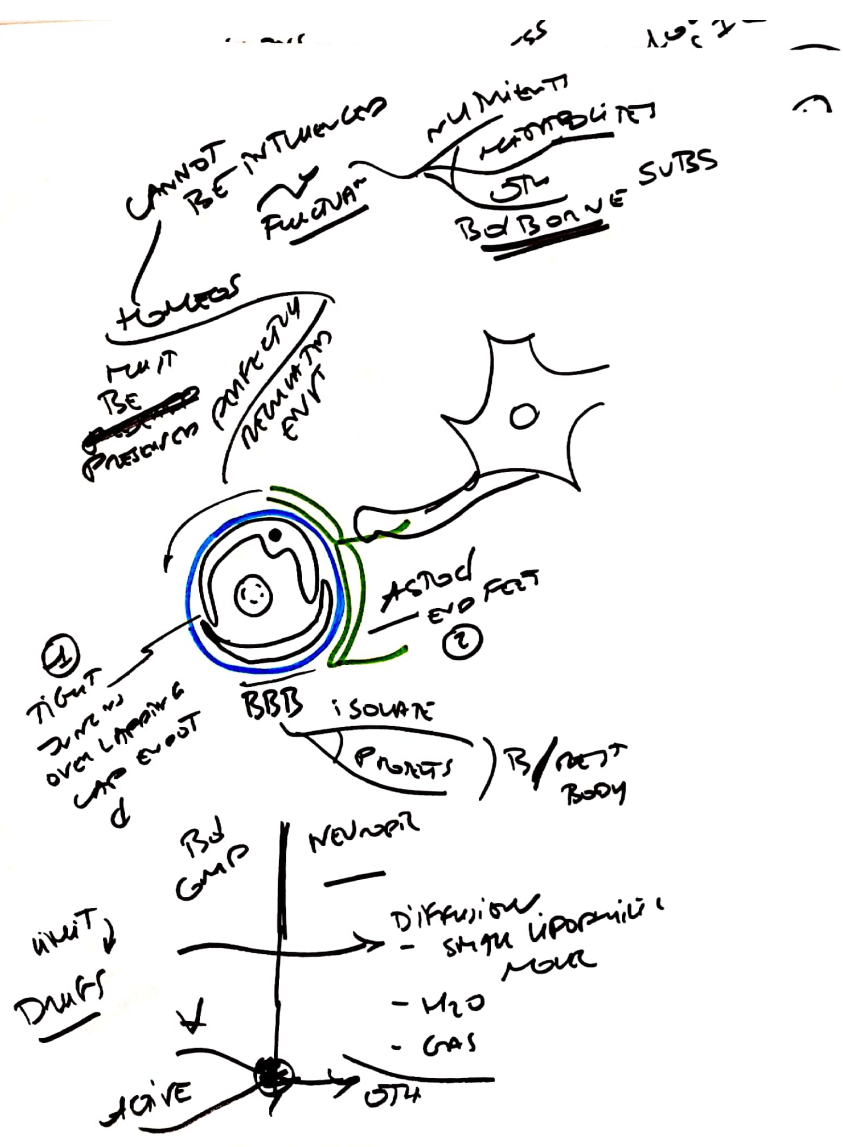 CANNOT
BE INFLUENCED
FLUCTUA^N
NUTRIENTS
METABOLITES
OTH
BdBORNE SUBS
HOMEOS
MUST
BE
PRESERVED
PERFECTLY
REGULATED
ENVT
ASTROC
END FEET
2
1
TIGHT
JUNCNS
OVERLAPPING
CAP ENDOT
BBB
ISOLATE
PROTETS
B/REST
BODY
Bd
COMP
NEUROPIL
LIMIT
DRUGS
DIFFUSION
- SMALL LIPOPHILIC
MOLEC
- H2O
- GAS
ACTIVE
OTH